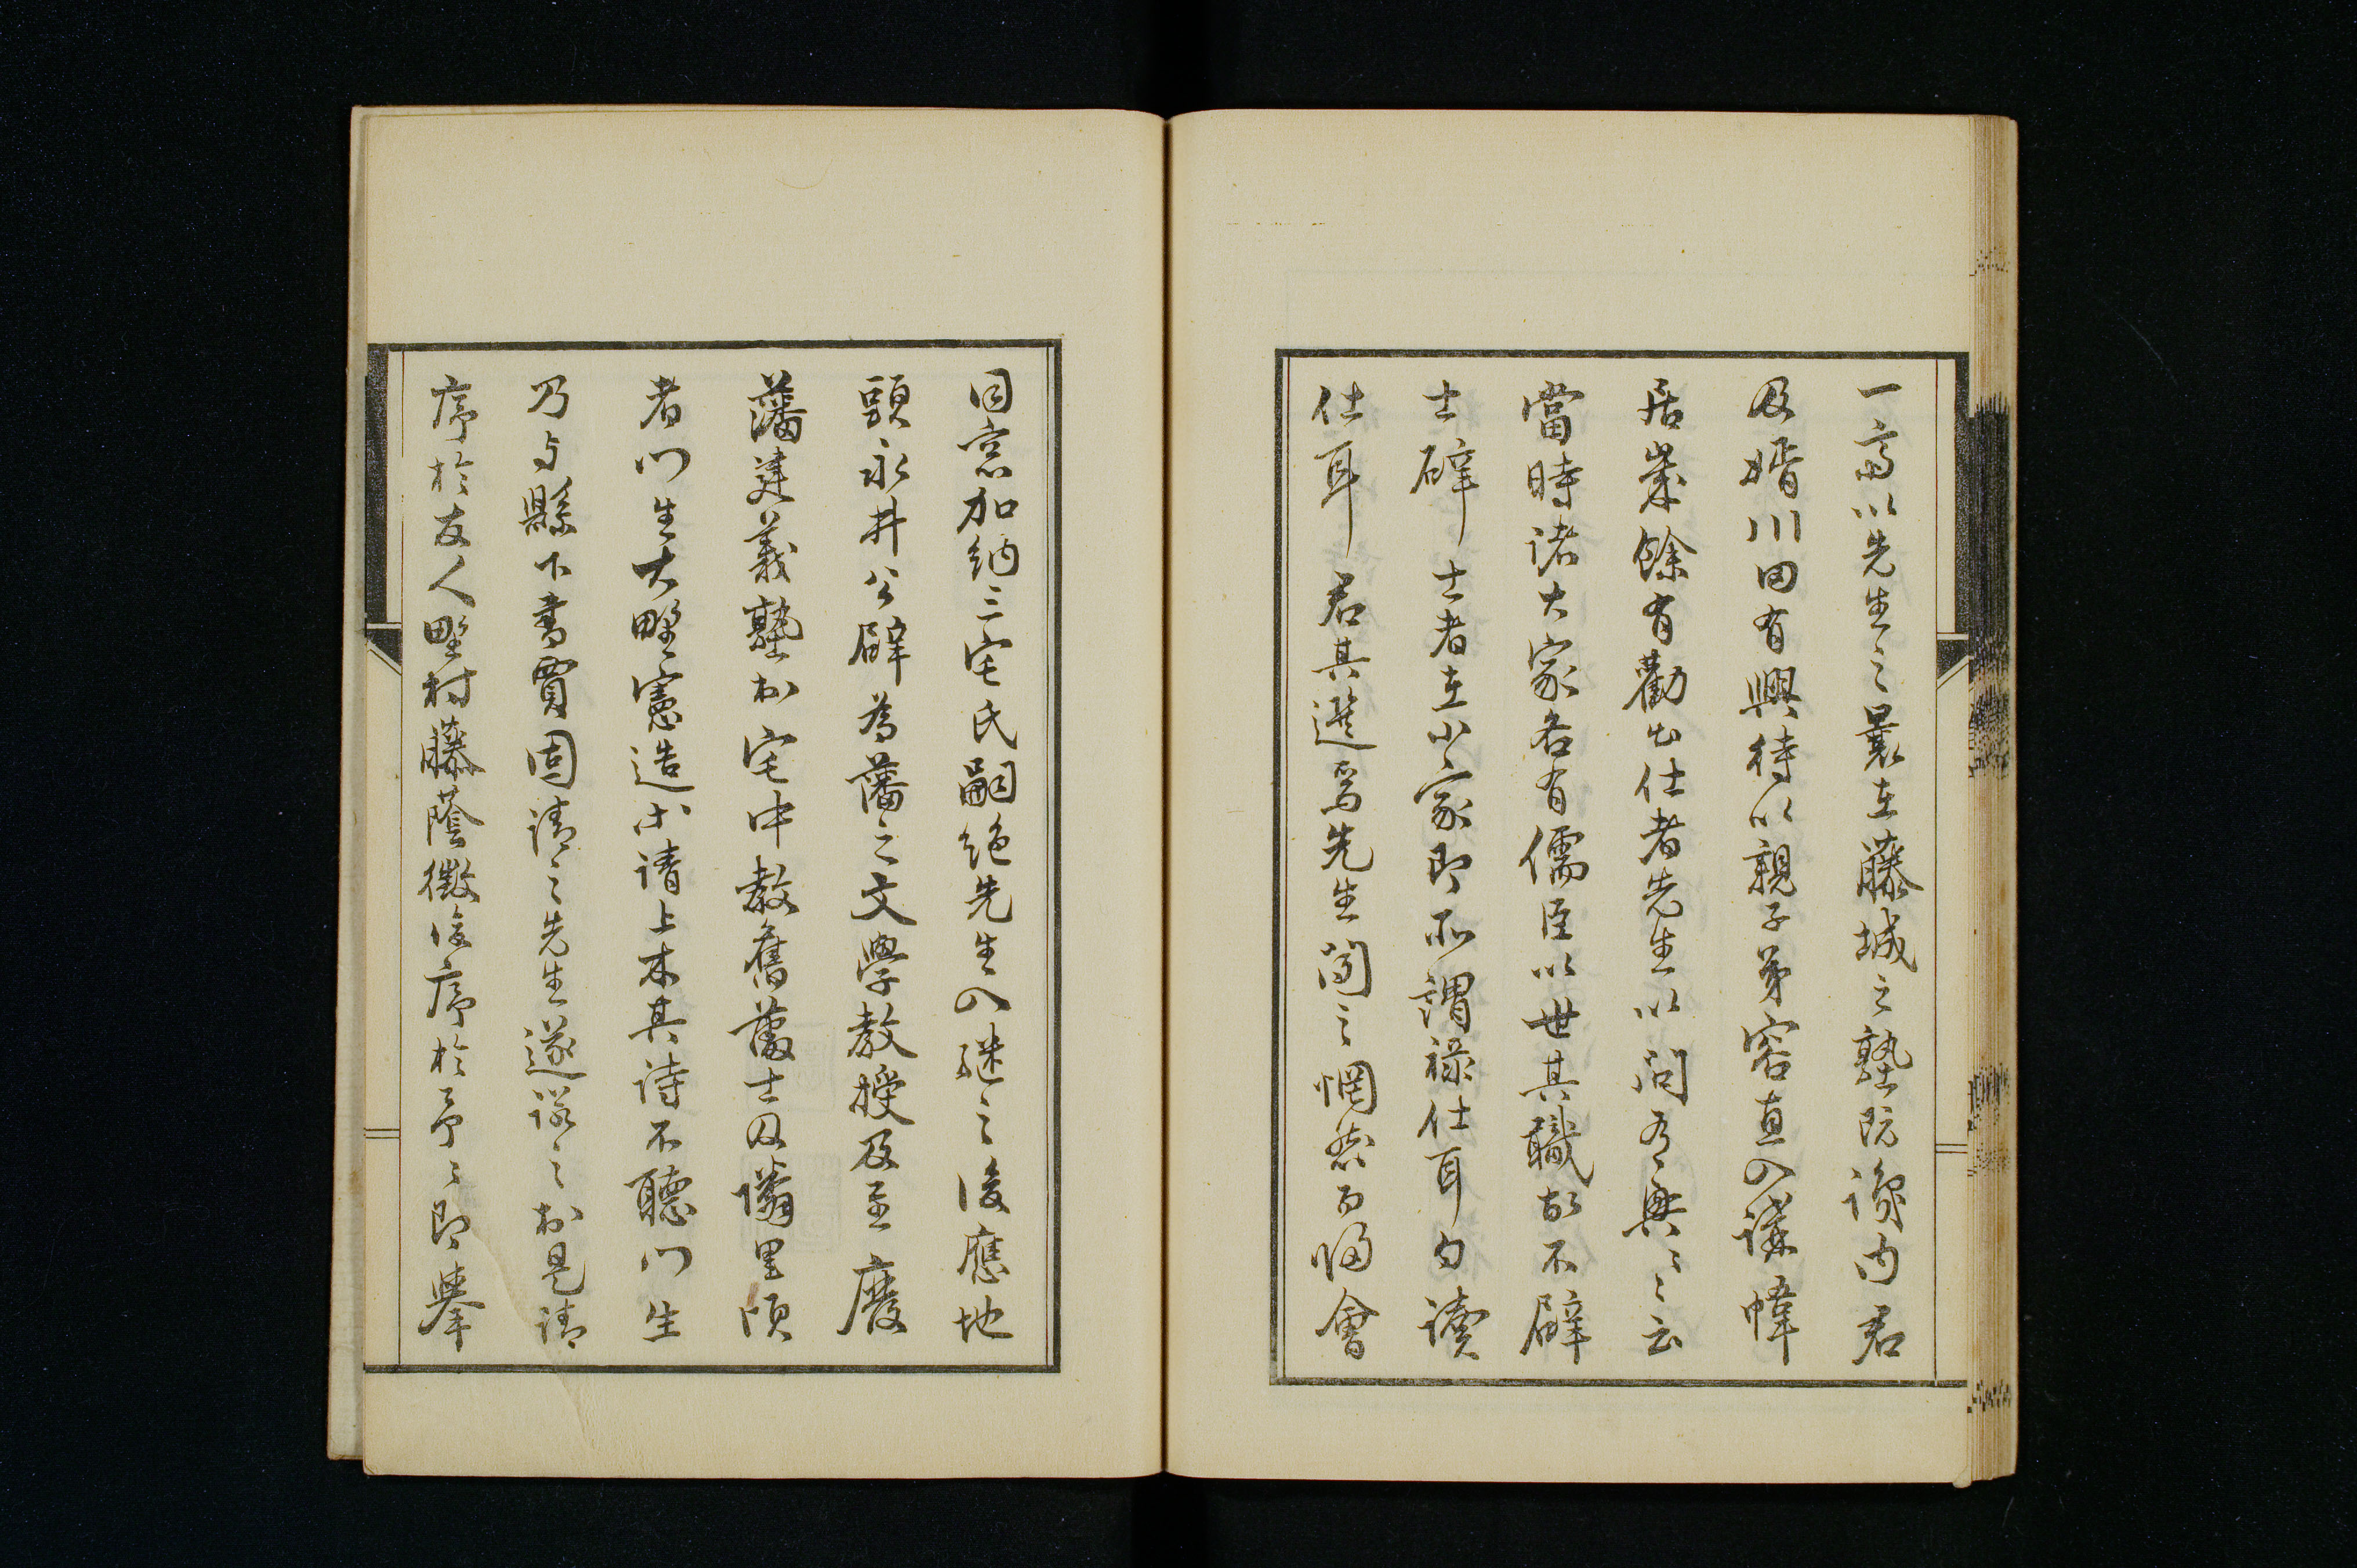 一斎以先生之曩在藤城之塾既識内君
及婿川田有興待以親子弟容直入講幃
居業餘有勸出仕者先生以問有興々々云
當時諸大家各有儒臣以世其職故不辟
士辟士者在小家即所謂祿仕耳句讀
仕耳君其選焉先生聞之惘然而帰會
同窓加納三宅氏嗣絶先生入継之後應地
頭永井公辟為藩之文學教授及至廢
藩建義塾於宅中教舊藩士及隣里頃
者門生大野憲造等請上木其詩不聽門生
乃与縣下書賈固請之先生遂諾之於是請
序於友人野村藤蔭徴後序於予々即擧